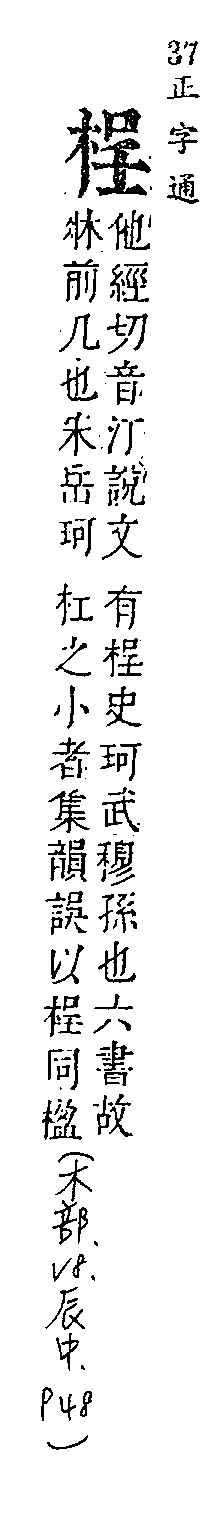 37正字通
桯
他經切音汀說文
牀前几也宋岳珂
有桯史珂武穆孫也六書故
杠之小者集韻誤以桯同楹
(木部.V8.辰中.P48)